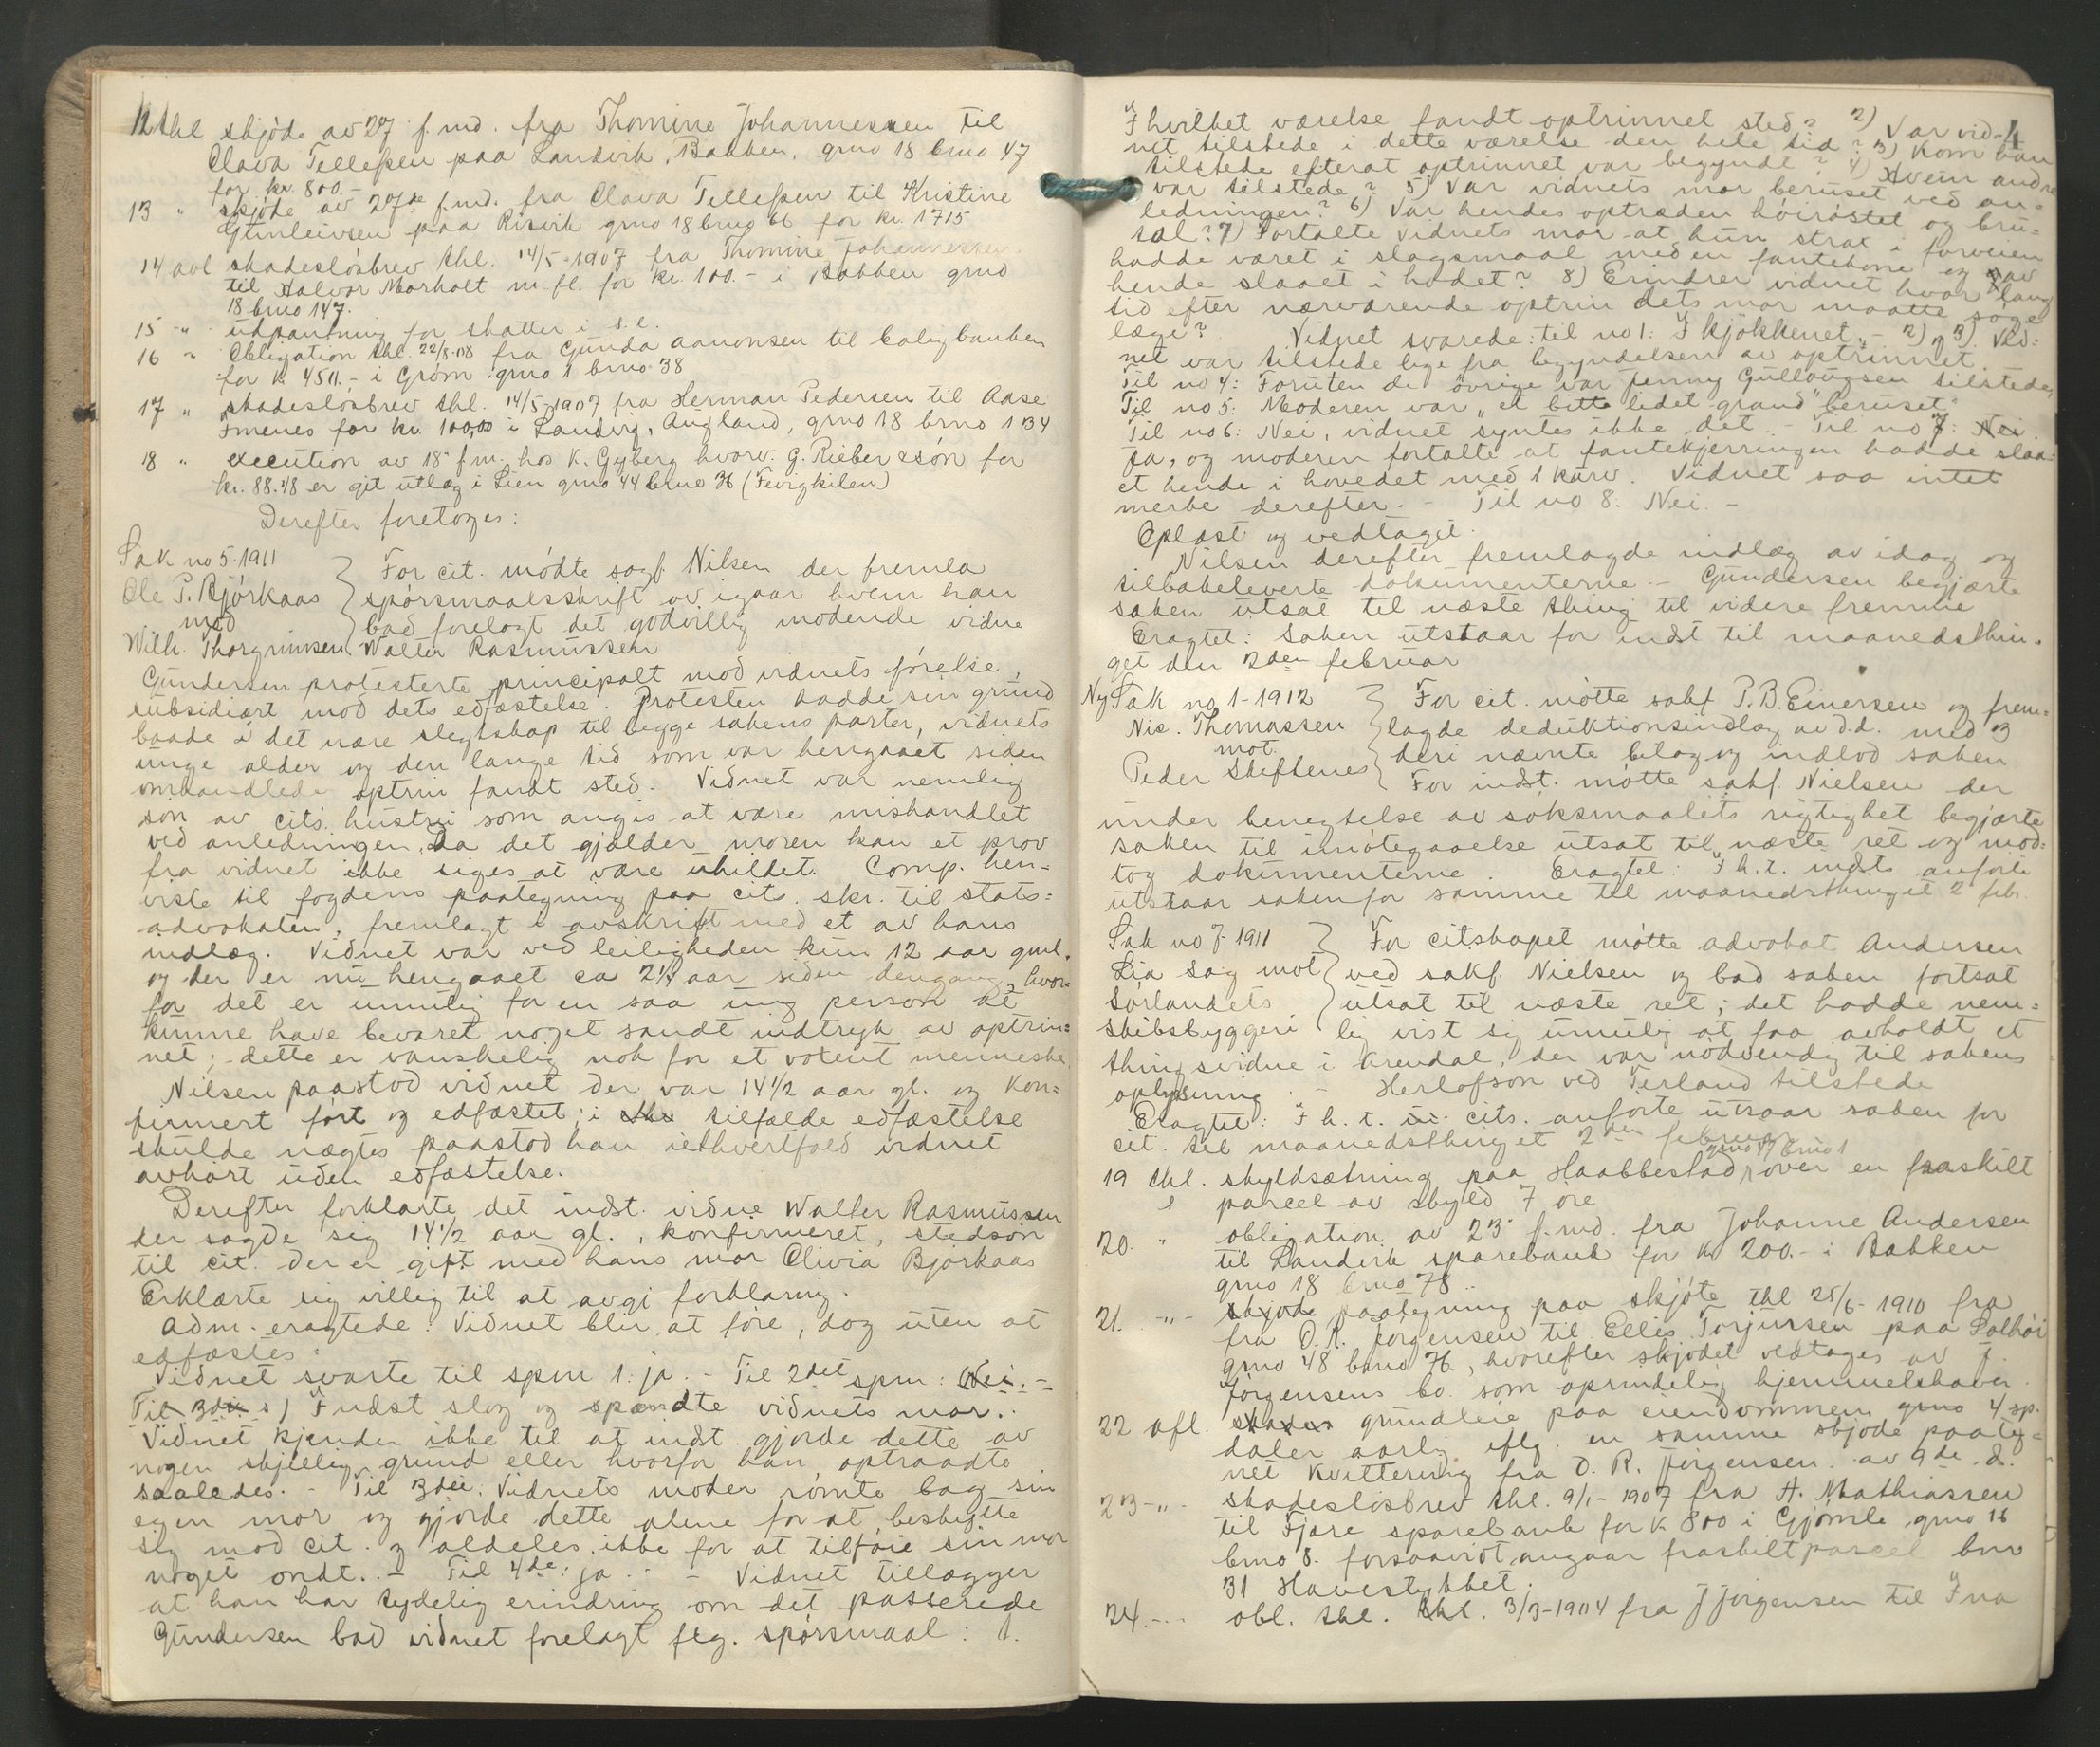 12 thl skjøde av 27 f.md. fra Thomine Johannessen til
Olava Tellefsen paa Landvik, Bakken, grno 18 brno 47
for kr. 800.-
13 " skjøde av 27de f.md. fra Olava Tellefsen til Kristine
Gunleivsen paa Risvik grno 18 brno 66 for kr. 1715
14 avl skadesløsbrev thl. 14/5-1907 fra Thomine Johannessen
til Halvor Morholt m.fl. for kr. 100.- i Bakken grno
18 brno 147.
15 - " udpantning for skatter i s.e.
16 " Obligation thl. 22/8.08 fra Gunda Aanonsen til boligbanken
for k. 4511.- i Grøm grno 1 brno 38
17 " skadesløsbrev thl. 14/5-1907 fra Herman Pedersen til Aase
Imenes for kr. 100,00 i Landvig, Augland, grno 18 brno 134
18 " execution av 18 f.m. hos K. Gyberg hvorv. G. Rieber & søn for
kr. 88.48 er git utlæg i Lien grno 44 brno 36 (Fevigkilen)
Derefter foretoges:
Sak no 5-1911
Ole P. Bjørkaas
mod
Wilh. Thorgrimsen
For cit. mødte sagf. Nilsen der fremla
spørsmaalsskrift av igaar hvem han
bad forelagt det godvillig mødende vidne
Walter Rasmussen
Gundersen protesterte principalt mod vidnets førelse,
subsidiært mod dets edfæstelse. Protesten hadde sin grund
baade i det nære slegtskap til begge sakens parter, vidnets
unge alder og den lange tid som var hengaaet siden
omhandlede optrin fandt sted. Vidnet var nemlig
søn av cits. hustru som angis at være mishandlet
ved anledningen. Da det gjælder moren kan et prov
fra vidnet ikke siges at være uhildet. Comp. hen=
viste til fogdens paategning paa cits. skr. til stats=
advokaten, fremlagt i avskrift med et av hans
indlæg. Vidnet var ved leiligheden kun 12 aar gml.
og der er nu hengaaet ca 2½ aar siden dengang, hvor=
for det er umulig for en saa ung person at
kunne have bevaret noget sandt indtryk av optrin=
net; dette er vanskelig nok for et voksent menneske.
Nilsen paastod vidnet der var 14½ aar gl. og kon=
firmert ført og edfæstet; i tilfælde edfæstelse
skulde nægtes paastod han iethvertfald vidnet
avhørt uden edfæstelse.
Derefter forklarte det indst. vidne Walter Rasmussen
der sagde sig 14½ aar gl., konfirmeret, stedsøn
til cit. der er gift med hans mor Olivia Bjørkaas
Erklærte sig villig til at avgi forklaring.
Adm. eragtede: Vidnet blir at føre, dog uten at
edfæstes.
Vidnet svarte til spm 1: ja. - Til 2det spm: Nei. -
Til 3die s) Indst slog og spændte vidnets mor.
Vidnet kjender ikke til at indst. gjorde dette av
nogen skjellig grund eller hvorfor han optraadte
saaledes. - Til 3die. Vidnets moder rømte bag sin
egen mor og gjorde dette alene for at beskytte
sig mod cit. og aldeles ikke for at tilføie sin mor
noget ondt. - Til 4de: ja. - Vidnet tillægger
at han har tydelig erindring om det passerede
Gundersen bad vidnet forelagt flg. spørsmaal: 1.
4
I hvilket værelse fandt optrinnet sted? 2) Var vid-
net tilstede i dette værelse den hele tid? 3) Kom han
tilstede efterat optrinnet var begyndt? 4) Hvem andre
var tilstede? 5) Var vidnets mor beruset ved an=
ledningen? 6) Var hendes optræden høirøstet og bru=
tal? 7) Fortalte vidnets mor at hun strax i forveien
hadde været i slagsmaal med en fantekone og av
hende slaaet i hodet? 8) Erindrer vidnet hvor lang
tid efter nærværende optrin dets mor maatte søge
læge? Vidnet svarede: til no 1: I kjøkkenet. - 2) og 3). Vid=
net var tilstede lige fra begyndelsen av optrinnet.
Til no 4: Foruten de øvrige var Jenny Gullaugsen tilstede.
Til no 5: Moderen var "et bitte lidet grand" beruset.
Til no 6: Nei, vidnet syntes ikke det. - Til no 7: Nei
Ja, og moderen fortalte at fantekjerringen hadde slaa=
et hende i hovedet med 1 kurv. Vidnet saa intet
merke derefter. - Til no 8. Nei. -
Oplæst og vedtaget.
Nilsen derefter fremlagde indlæg av idag og
tilbakeleverte dokumenterne - Gundersen begjærte
saken utsat til næste thing til videre fremme
Eragtet: Saken utstaar for indst til maanedsthin=
get den 2den februar
Ny Sak no 1-1912
Nic. Thomassen
mot
Peder Skiftenes
For cit. møtte sakf. P.B. Einersen og frem=
lagde deduktionsindlæg av d.d. med 3
deri nævnte bilag og indlod saken
For indst. møtte sakf. Nielsen der
under benegtelse av søksmaalets rigtighet begjærte
saken til imøtegaaelse utsat til næste ret og mod=
tog dokumenterne. Eragtet: I h.t. indst. anførte
utstaar saken for samme til maanedsthinget 2 febr.
Sak no 7-1911
Lia Sag mot
Sørlandets
Skibsbyggeri
For citskapet møtte advokat Andersen
ved sakf. Nielsen og bad saken fortsat
utsat til næste ret; det hadde nem=
lig vist sig umulig at faa avholdt et
thingsvidne i Arendal, der var nødvendig til sakens
oplysning. - Herlofson ved Terland tilstede
Eragtet: I h. t. cits. anførte utsaar saken for
cit. til maanedsthinget 2den februar
19 thl. skyldsætning paa Haabbestad, grno 47 brno 1 over en fraskilt
parcel av skyld 7 øre
20. " obligation av 23 f.md. fra Johanne Andersen
til Landvik sparebank for k 200.- i Bakken
grno 18 brno 78.
21. - " - skjøde paategning paa skjøte thl 25/6-1910 fra
fra O.R. Jørgensen til Ellis Torjussen paa Solhøi
grno 48 brno 76, hvorefter skjødet vedtages av J.
Jørgensens bo. som oprindelig hjemmelshaver.
22 afl. skades grundleie paa eiendommen grno 4 sp.
daler aarlig iflg. en samme skjøde paateg=
net kvittering fra O. R. Jørgensen av 9de d.
23 - " - skadesløsbrev thl. 9/1-1907 fra A. Mathiassen
til Fjære sparebank for k. 800 i Gjømle grno 16
brno 8. forsaavidt angaar fraskilt parcel bnr
31 Havestykket.
24. - - - obl. thl. thl. 3/3-1904 fra J Jørgensen til Ina